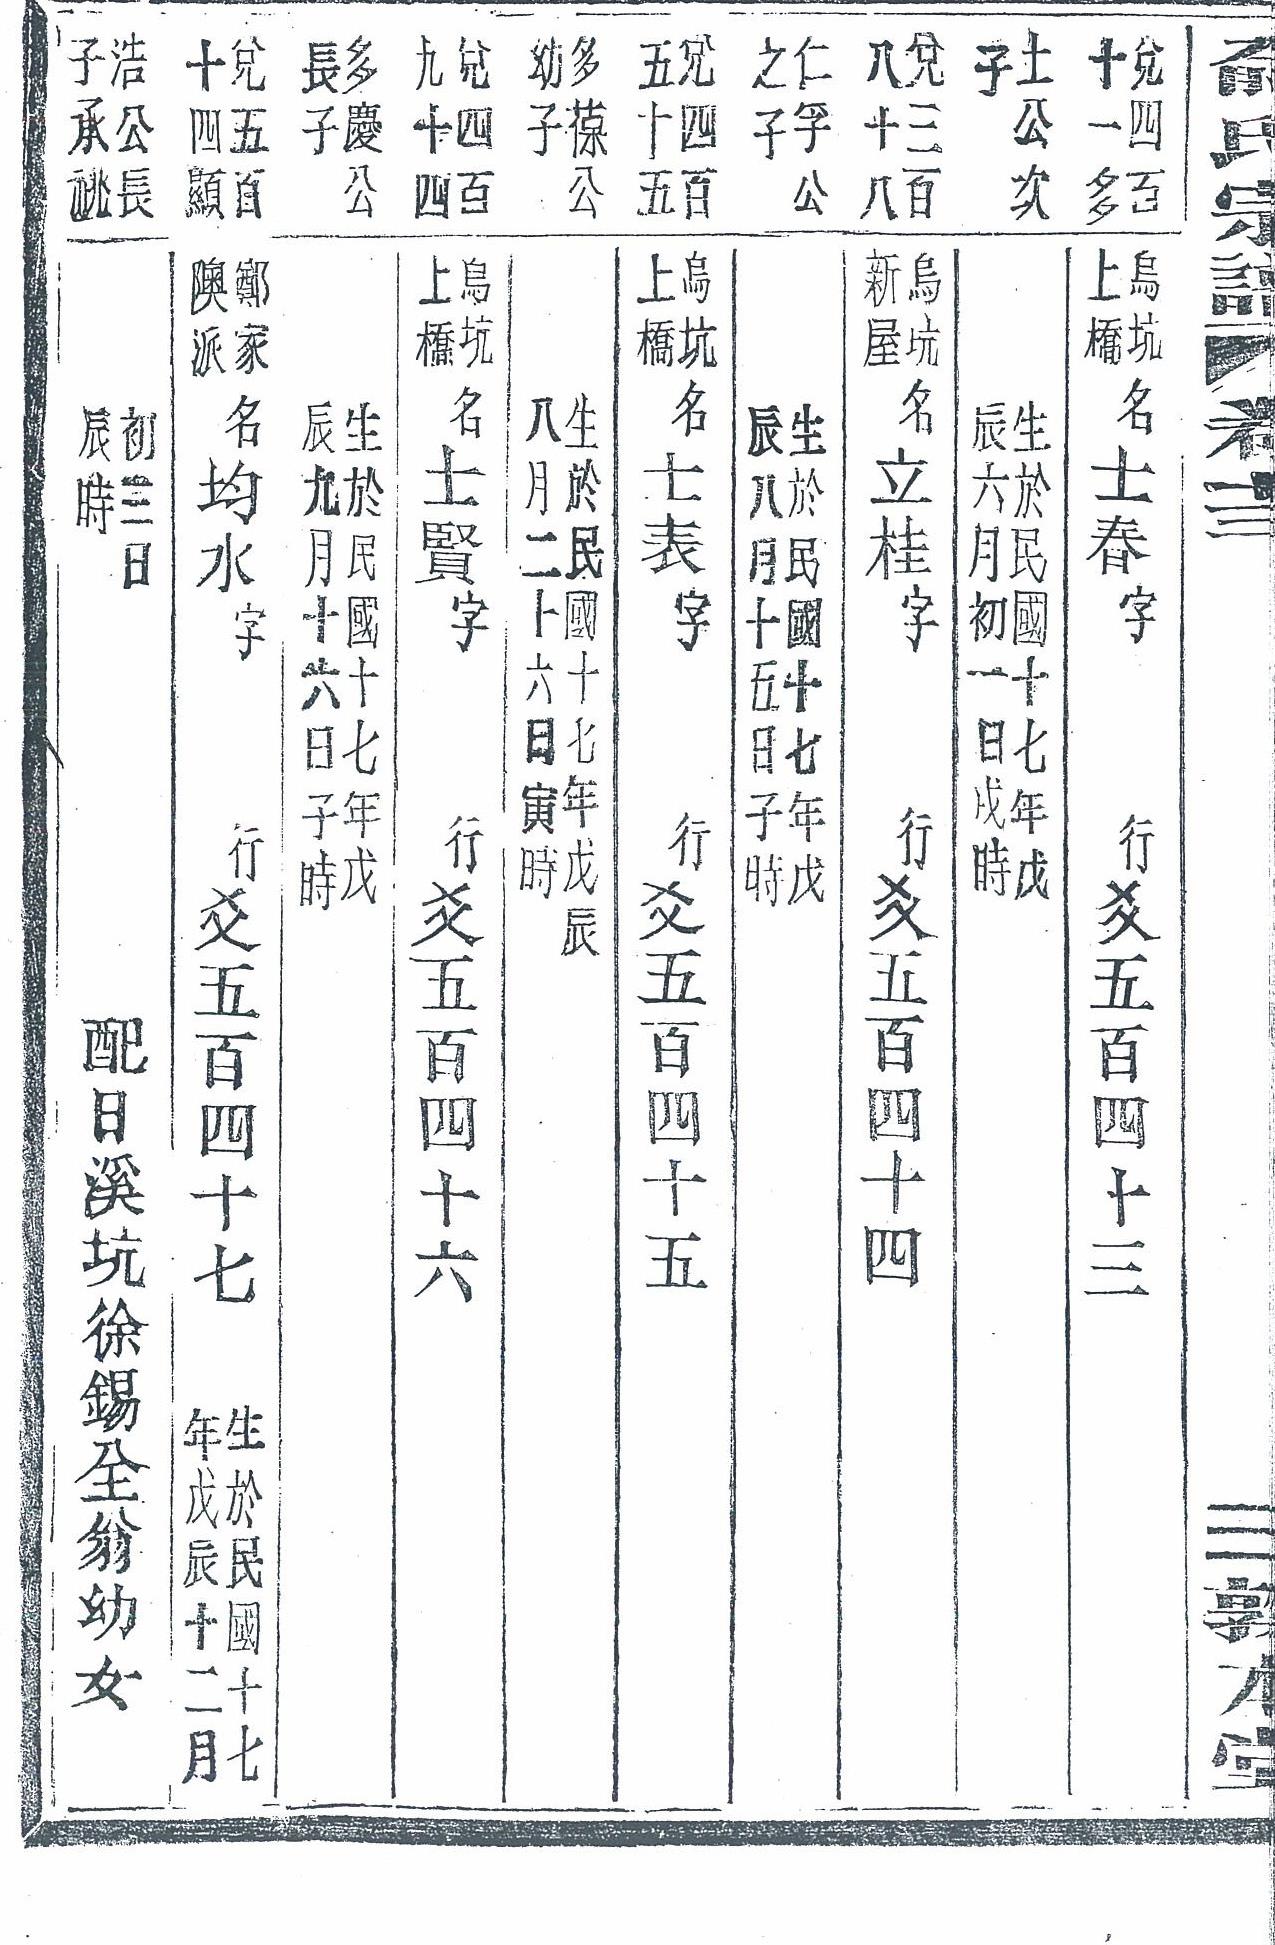 氏宗譜
三
敦本堂
兌四百
十一多
土公次
子
烏坑
上橋
名士春字 行爻五百四十三
生於民國十七年戊
辰六月初一日戌時
兌三百
八十八
仁孚公
之子
烏坑
新屋
名立桂字 行爻五百四十四
生於民國十七年戊
辰八月十五日子時
兌四百
五十五
多葆公
幼子
烏坑
上橋
名士表字 行爻五百四十五
生於民國十七年戊辰
八月二十六日寅時
兌四百
九十四
多慶公
長子
烏坑
上橋
名士賢字 行爻五百四十六
生於民國十七年戊
辰九月十六日子時
兌五百
十四顯
浩公長
子承祧
鄭家
隩派
名均水字 行爻五百四十七
生於民國十七
年戊辰十二月
初三日
辰時
配日溪坑徐錫全翁幼女